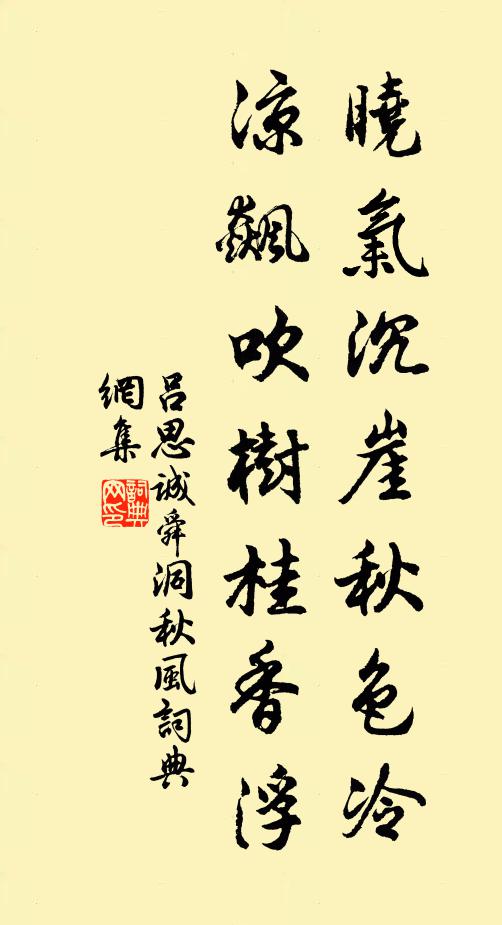 曉氣沉崖秋色冷
涼飆吹樹桂香浮
吕思誠舜洞秋風詞典
網集
詞典
网印